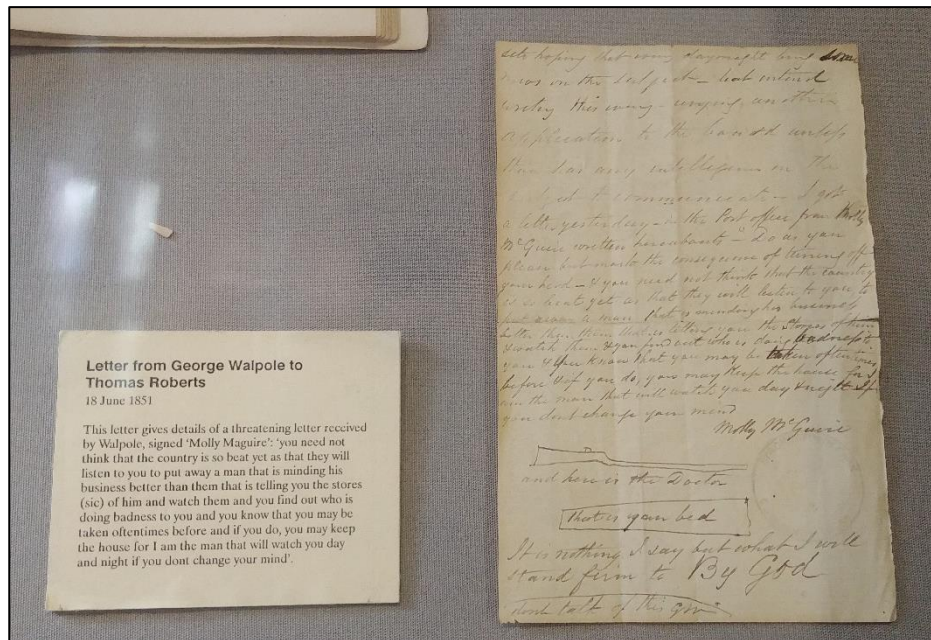 Letter from George Walpole to
Thomas Roberts
18 June 1851
This letter gives details of a threatening letter received
by Walpole, signed 'Molly Maguire': 'you need not
think that the country is so beat yet as that they will
listen to you to put away a man that is minding his
business better than them that is telling you the stores
(sic) of him and watch them and you find out who is
doing badness to you and you know that you may be
taken oftentimes before and if you do, you may keep
the house for I am the man that will watch you day
and night if you dont change your mind'.
hoping that some day might
on the subject – but intend
another
application to the board unless
has any intelligence in the
to communicate – I got
a letter yesterday – in the Post office from Molly
McGuire written – "Do as you
please but mark the consequence of turning off
your herd – & you need not think that the country
is so beat yet as that they will listen to you to
put away a man that is minding his business
better than them that is telling you the stores of him
& watch them & you find out who is doing badness to
you & you know that you may be taken oftentimes
before & if you do, you may keep the house for I
am the man that will watch you day & night if
you dont change your mind
Molly McGuire
and here is the Doctor
that is your bed
It is nothing I say but what I will
stand firm to By God
dont talk of this